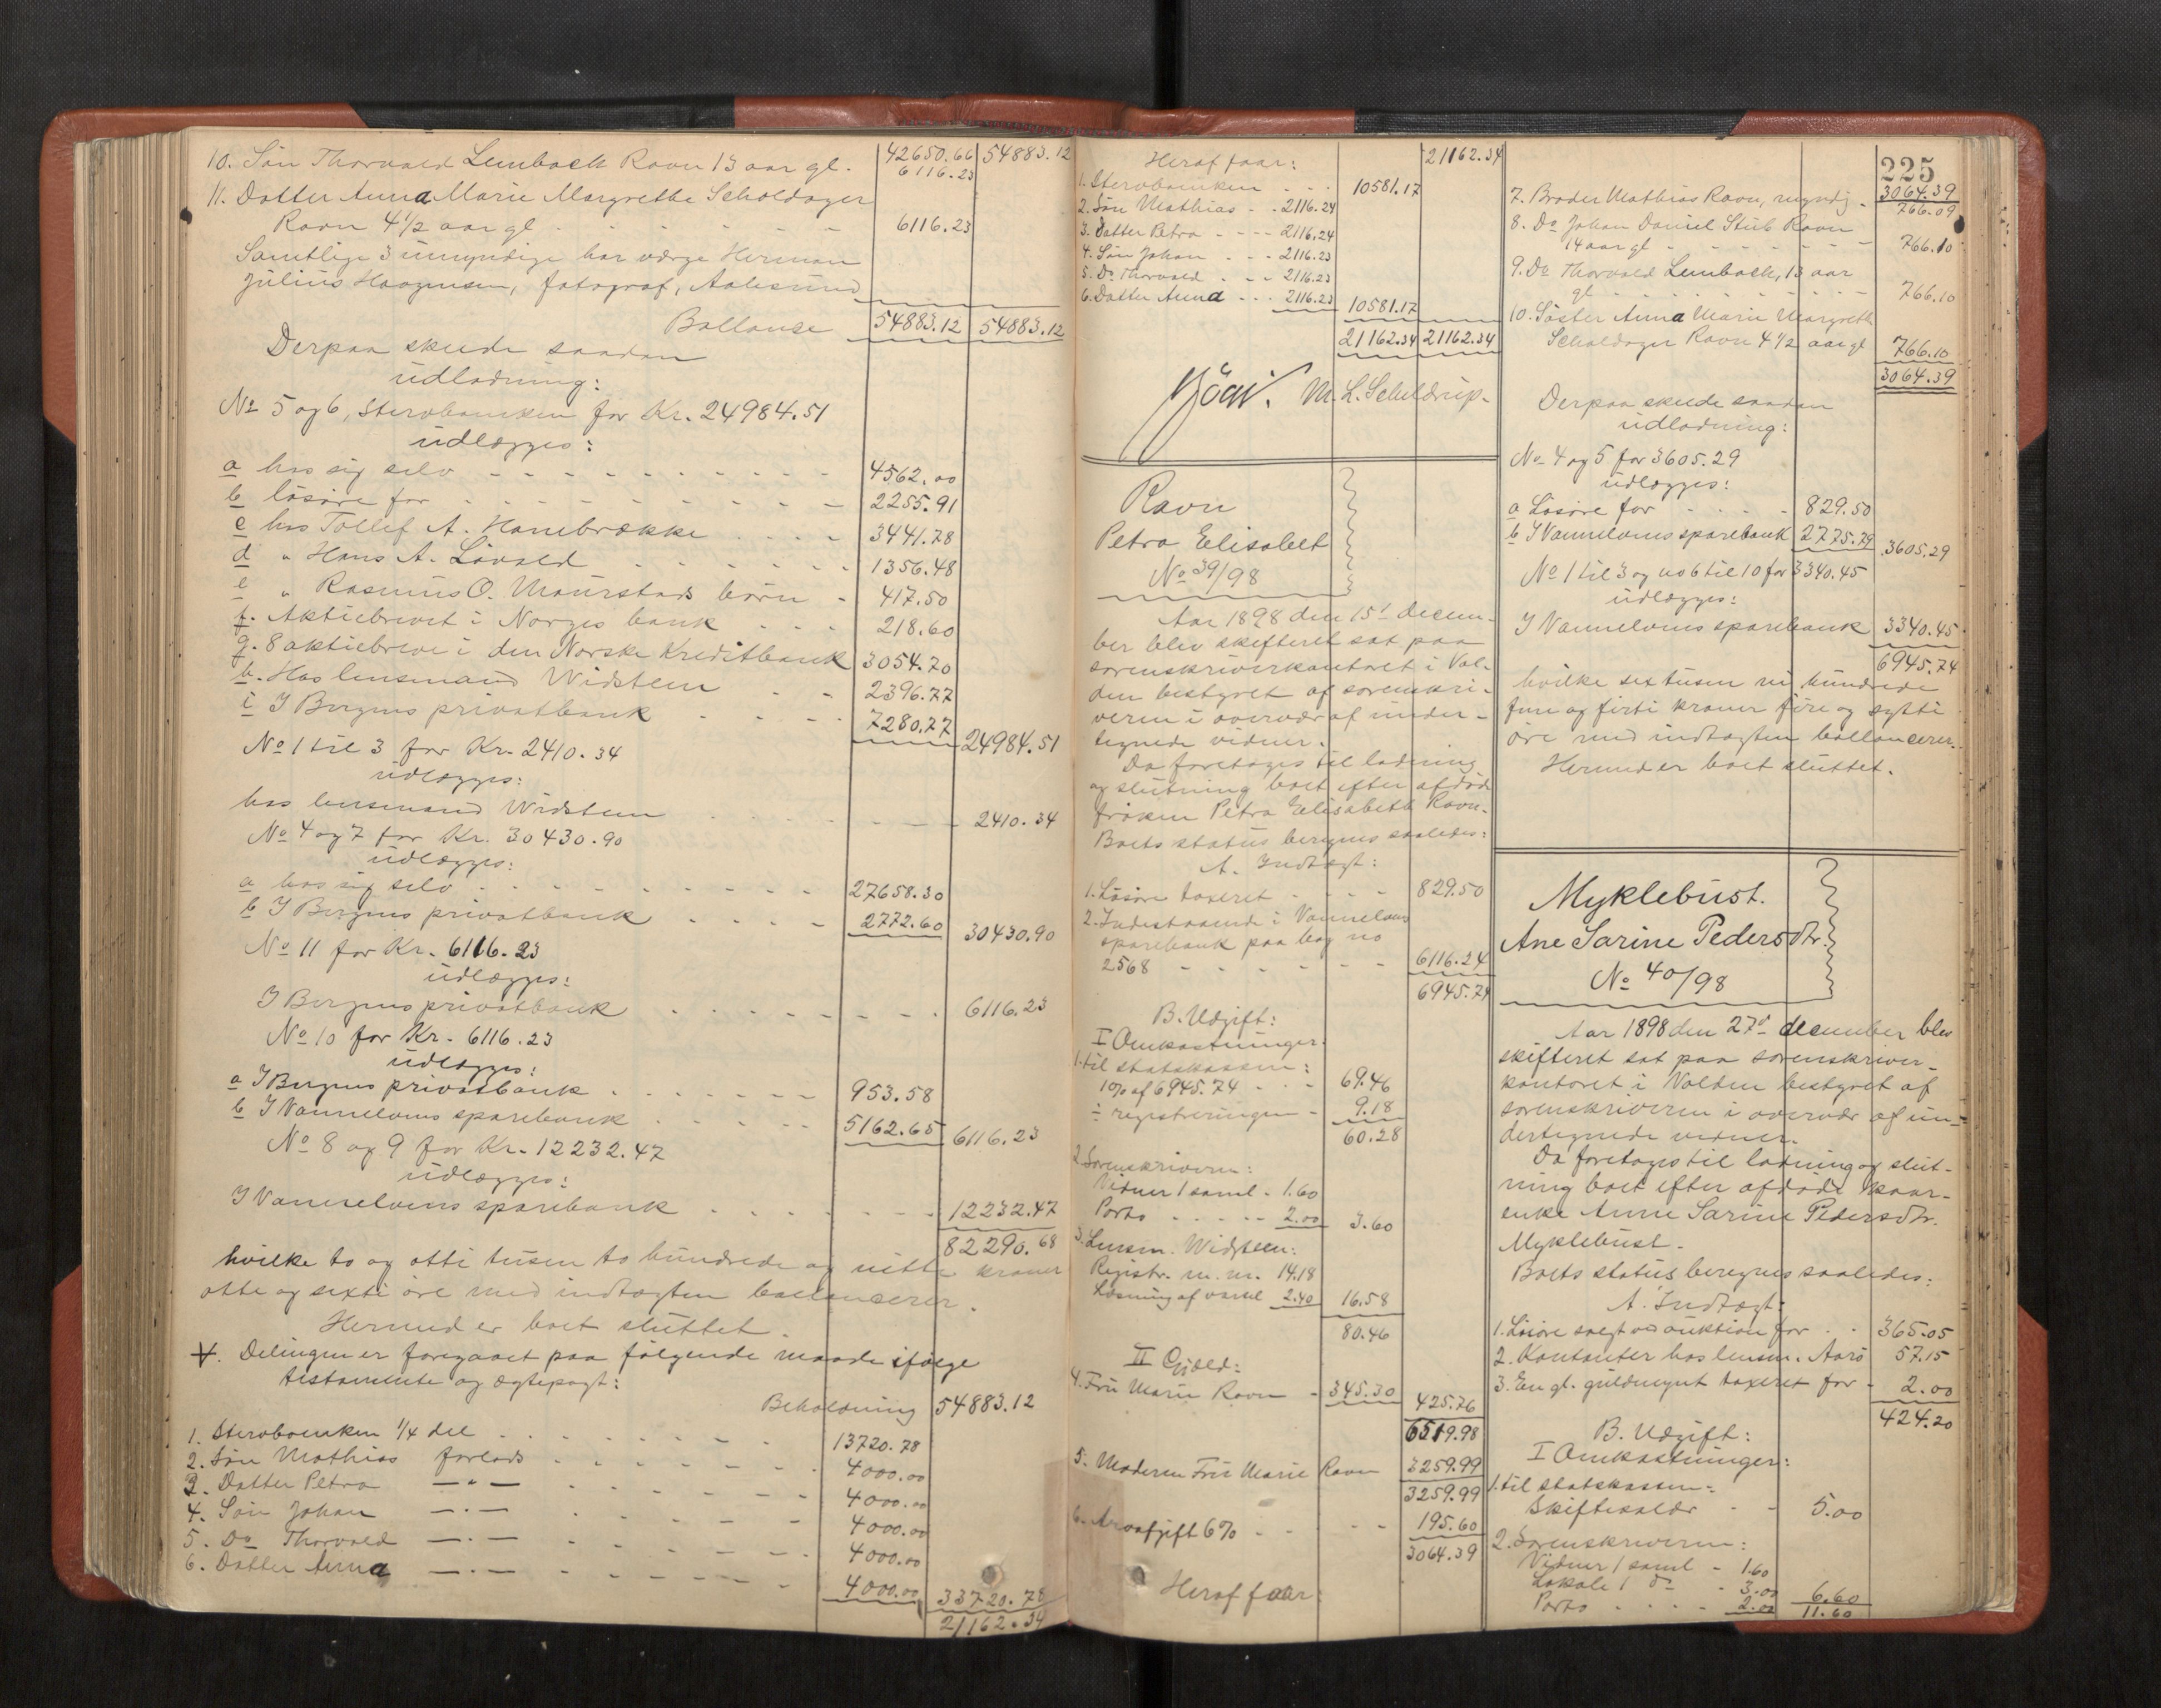 10. Søn Thorvald Lembach Ravn 13 aar gl. 42650.66 54883.12
6116.23
11. Datter Anna Marie Margrethe Scholdager
Ravn 4 1/2 aar gl - - - - - 6116.23
Samtlige 3 umyndige har værge Herman
Julius Haagensen, fotograf, Aalesund
Ballanse 54883.12 54883.12
Derpaa skede saadan
udlodning:
No 5 og 6, Stervboenken for Kr. 24984.51
udlægges:
a hos sig selv - - - - 4562.00
b løsøre for - - - - 2255.91
c hos Tollef A. Hanebrække - - - 3441.78
d " Hans A. Løvold - - - 1356.48
e " Rasmus O. Maurstads børn - 417.50
f. Aktiebrevet i Norges bank - - - 218.60
g. 8 aktiebreve i den Norske Kreditbank 3054.70
h. Hos lensmand Widsteen - - 2396.77
i I Bergens privatbank - - - 7280.77 24984.51
No 1 til 3 for Kr. 2410.34
udlægges:
hos lensmand Widsteen - - - - 2410.34
No 4 og 7 for Kr. 30430.90
udlægges:
a hos sig selv - - - - 27658.30
b I Bergens privatbank - - - 2772.60 30430.90
No 11 for Kr. 6116.23
udlægges:
I Bergens privatbank - - - - 6116.23
No 10 for Kr. 6116.23
udlægges:
a I Bergens privatbank - - - 953.58
b I Vannelvens sparebank - - - 5162.65 6116.23
No 8 og 9 for Kr. 12232.47
udlægges:
I Vannelvens sparebank - - - - 12232.47
82290.68
hvilke to og otti tusen to hundrede og nitti kroner
otte og sexti øre med indtægten ballancerer.
Hermed er boet sluttet.
V. Delingen er foregaaet paa følgende maade ifølge
testamente og ægtepagt:
Beholdning 54883.12
1. Stervboenken 1/4 del - - - - 13720.78
2. Søn Mathias forlods - - - - 4000.00
3. Datter Petra — " — - - - 4000.00
4. Søn Johan — " — - - - 4000.00
5. Do Thorvald — " — - - - 4000.00
6. Datter Anna — " — - - - 4000.00 33720.78
21162.34
Heraf faar: 21162.34
1. Stervboenken - - - 10581.17
2. Søn Mathias - - 2116.24
3. Datter Petra - - - 2116.24
4. Søn Johan - - - 2116.23
5. Do Thorvald - - - 2116.23
6. Datter Anna - - - 2116.23 10581.17
21162.34 21162.34
M. L. Scheldrup.
Ravn
Petra Elisabet
No 39/98
Aar 1898 den 15de decem-
ber blev skifteret sat paa
sorenskriverkontoret i Vol-
den bestyret af sorenskri-
veren i overvær af under-
tegnede vidner.
Da foretages til lodning
og slutning boet efter afdøde
frøken Petra Elisabeth Ravn.
Boets status beregnes saaledes:
A. Indtægt:
1. Løsøre taxeret - - - 829.50
2. Indestaaende i Vannelvens
sparebank paa bog no
2568 - - - - - 6116.24
6945.74
B. Udgift:
I Omkostninger.
1. til statskassen:
1% af 6945.74 - - - 69.46
÷ registreringen - 9.18
60.28
2. Sorenskriveren:
Vidner 1 saml. - 1.60
Porto - - - - 2.00 3.60
3. Lensm. Widsteen:
Registr. m. m. 14.18
Læsning af varsel 2.40 16.58
80.46
II Gjæld:
4. Fru Marie Ravn - 345.30 425.76
6519.98
5. Moderen Fru Marie Ravn 3259.99
3259.99
6. Arveafgift 6% - - - - 195.60
3064.39
Heraf faar:
225
3064.39
7. Broder Mathias Ravn, myndig - 766.09
8. Do Johan Daniel Stub Ravn
14 aar gl - - - - - 766.10
9. Do Thorvald Lembach, 13 aar
gl - - - - - 766.10
10. Søster Anna Marie Margreth
Scholdager Ravn 4 1/2 aar gl 766.10
3064.39
Derpaa skede saadan
udlodning:
No 4 og 5 for 3605.29
udlægges:
a Løsøre for - - - 829.50
b I Vannelvens sparebank 2775.79 3605.29
No 1 til 3 og no 6 til 10 for 3340.45
udlægges:
I Vannelvens sparebank 3340.45
6945.74
hvilke sextusen ni hundrede
fem og firti kroner fire og sytti
øre med indtægten ballancerer.
Hermed er boet sluttet.
Myklebust.
Ane Sarine Pedersdtr.
No 40/98
Aar 1898 den 27de december blev
skifteret sat paa sorenskriver-
kontoret i Volden bestyret af
sorenskriveren i overvær af un-
dertegnede vidner.
Da foretages til lodning og slut-
ning boet efter afdøde kaar-
enke Anne Sarine Pedersdtr.
Myklebust.
Boets status beregnes saaledes:
A. Indtægt:
1. Løsøre solgt ved auktion for - - 365.05
2. Kontanter hos lensm. Aarø 57.15
3. En gl. guldmynt taxeret for - 2.00
424.20
B. Udgift:
I Omkostninger:
1. til statskassen:
Skiftesalær - - 5.00
2. Sorenskriveren:
Vidner 1 saml - 1.60
Lokale 1 do - 3.00
Porto - - - - 2.00 6.60
11.60